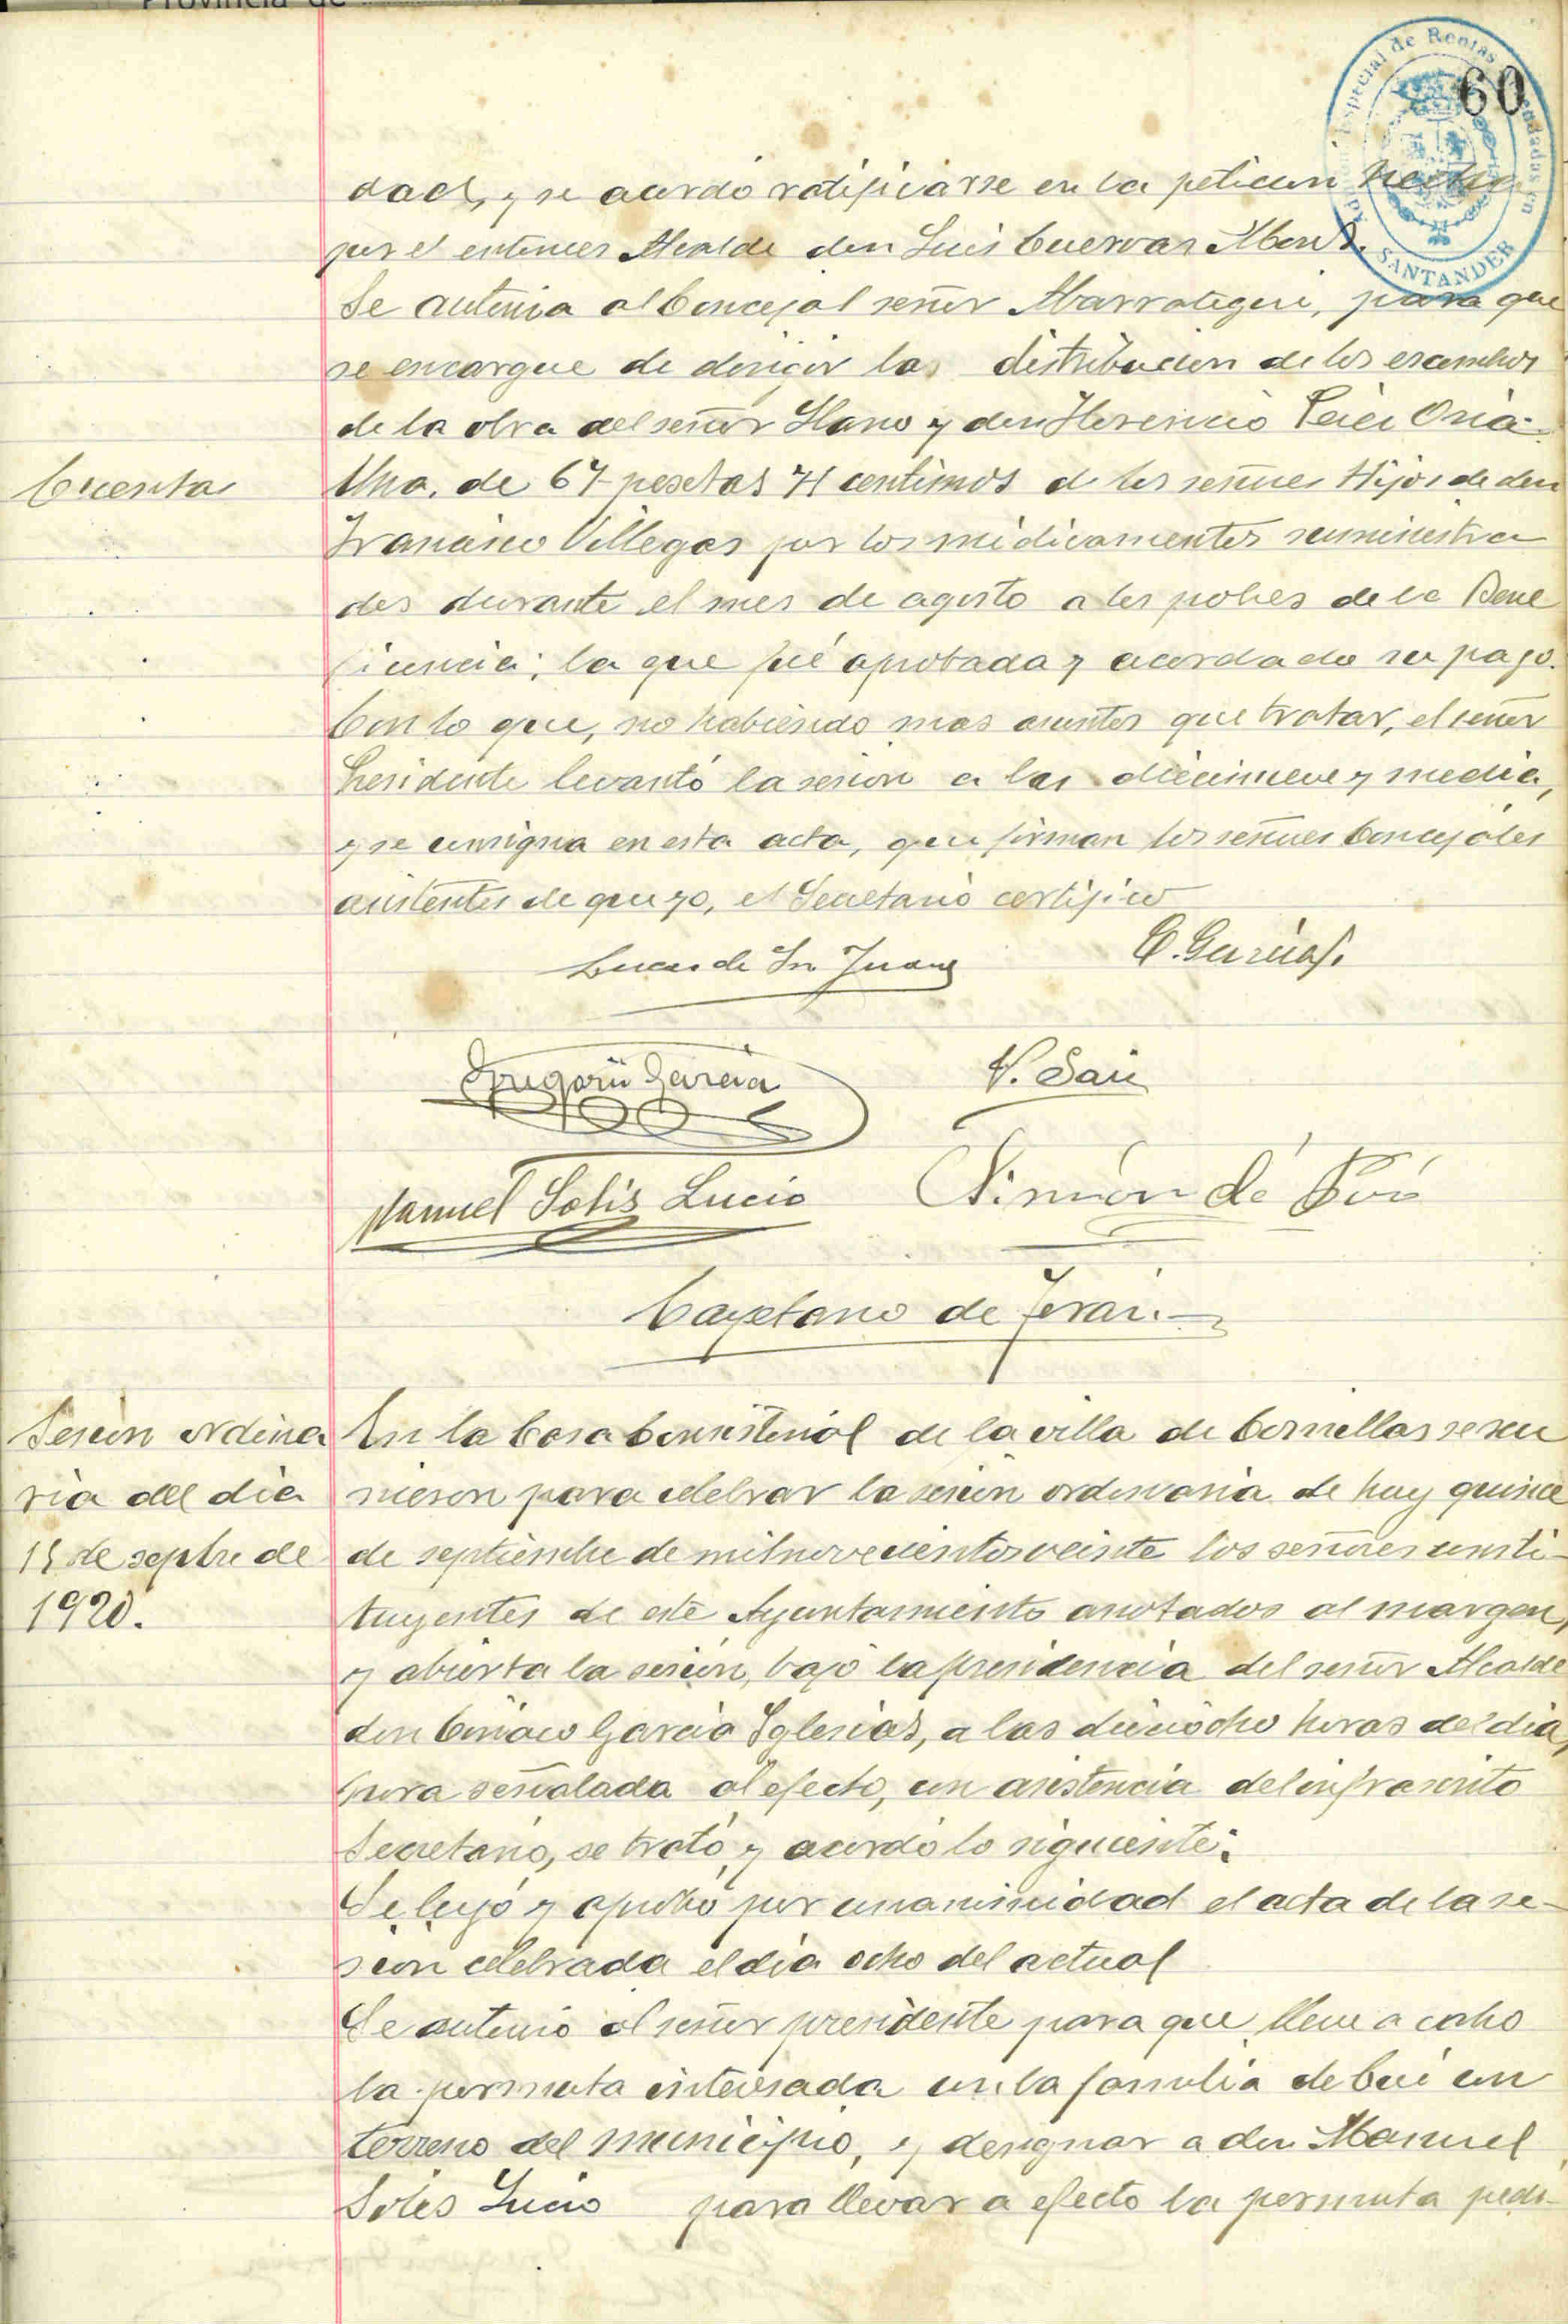 Provincia de
60
Especial de Rentas
SANTANDER
dad, y se acordó ratificarse en la peticion hecha
por el entonces Alcalde don Luis Cuervas Mons.
Se autoriza al Concejal señor Marrategui, para que
se encargue de dirigir la distribucion de los escombros
de la obra del señor Llano y don Florencio
Cuenta
Una, de 67 pesetas 71 centimos de los señores Hijos de don
Francisco Villegas por los medicamentos suministra
dos durante el mes de agosto a los pobres de la Bene
ficencia; la que fué aprobada y acordado su pago.
Con lo que, no habiendo mas asuntos que tratar, el señor
Presidente levantó la sesion a las diecinueve y media,
y se consigna en esta acta, que firman los señores Concejales
asistentes de que yo, el Secretario certifico
Lucas de Sn Juan
C. García
Gregorio Garcia
V. Saiz
Manuel Solis Lucio
Simón de
Cayetano de Teran
Sesion ordina
ria del dia
15 de septbre de
1920.
En la Casa Consistorial de la villa de Comillas se reu
nieron para celebrar la sesion ordinaria de hoy quince
de septiembre de mil novecientos veinte los señores consti-
tuyentes de este Ayuntamiento anotados al margen,
y abierta la sesion, bajo la presidencia del señor Alcalde
don Ciriaco Garcia Iglesias, a las dieciocho horas del dia,
hora señalada al efecto, con asistencia del infrascrito
Secretario, se trató y acordó lo siguiente:
Se leyó y aprobó por unanimidad el acta de la se-
sion celebrada el dia ocho del actual
Se autorió al señor presidente para que lleve a cabo
la permuta interesada con la familia de con
terreno del municipio, y designar a don Manuel
Solis Lucio para llevar a efecto la permuta pedi-